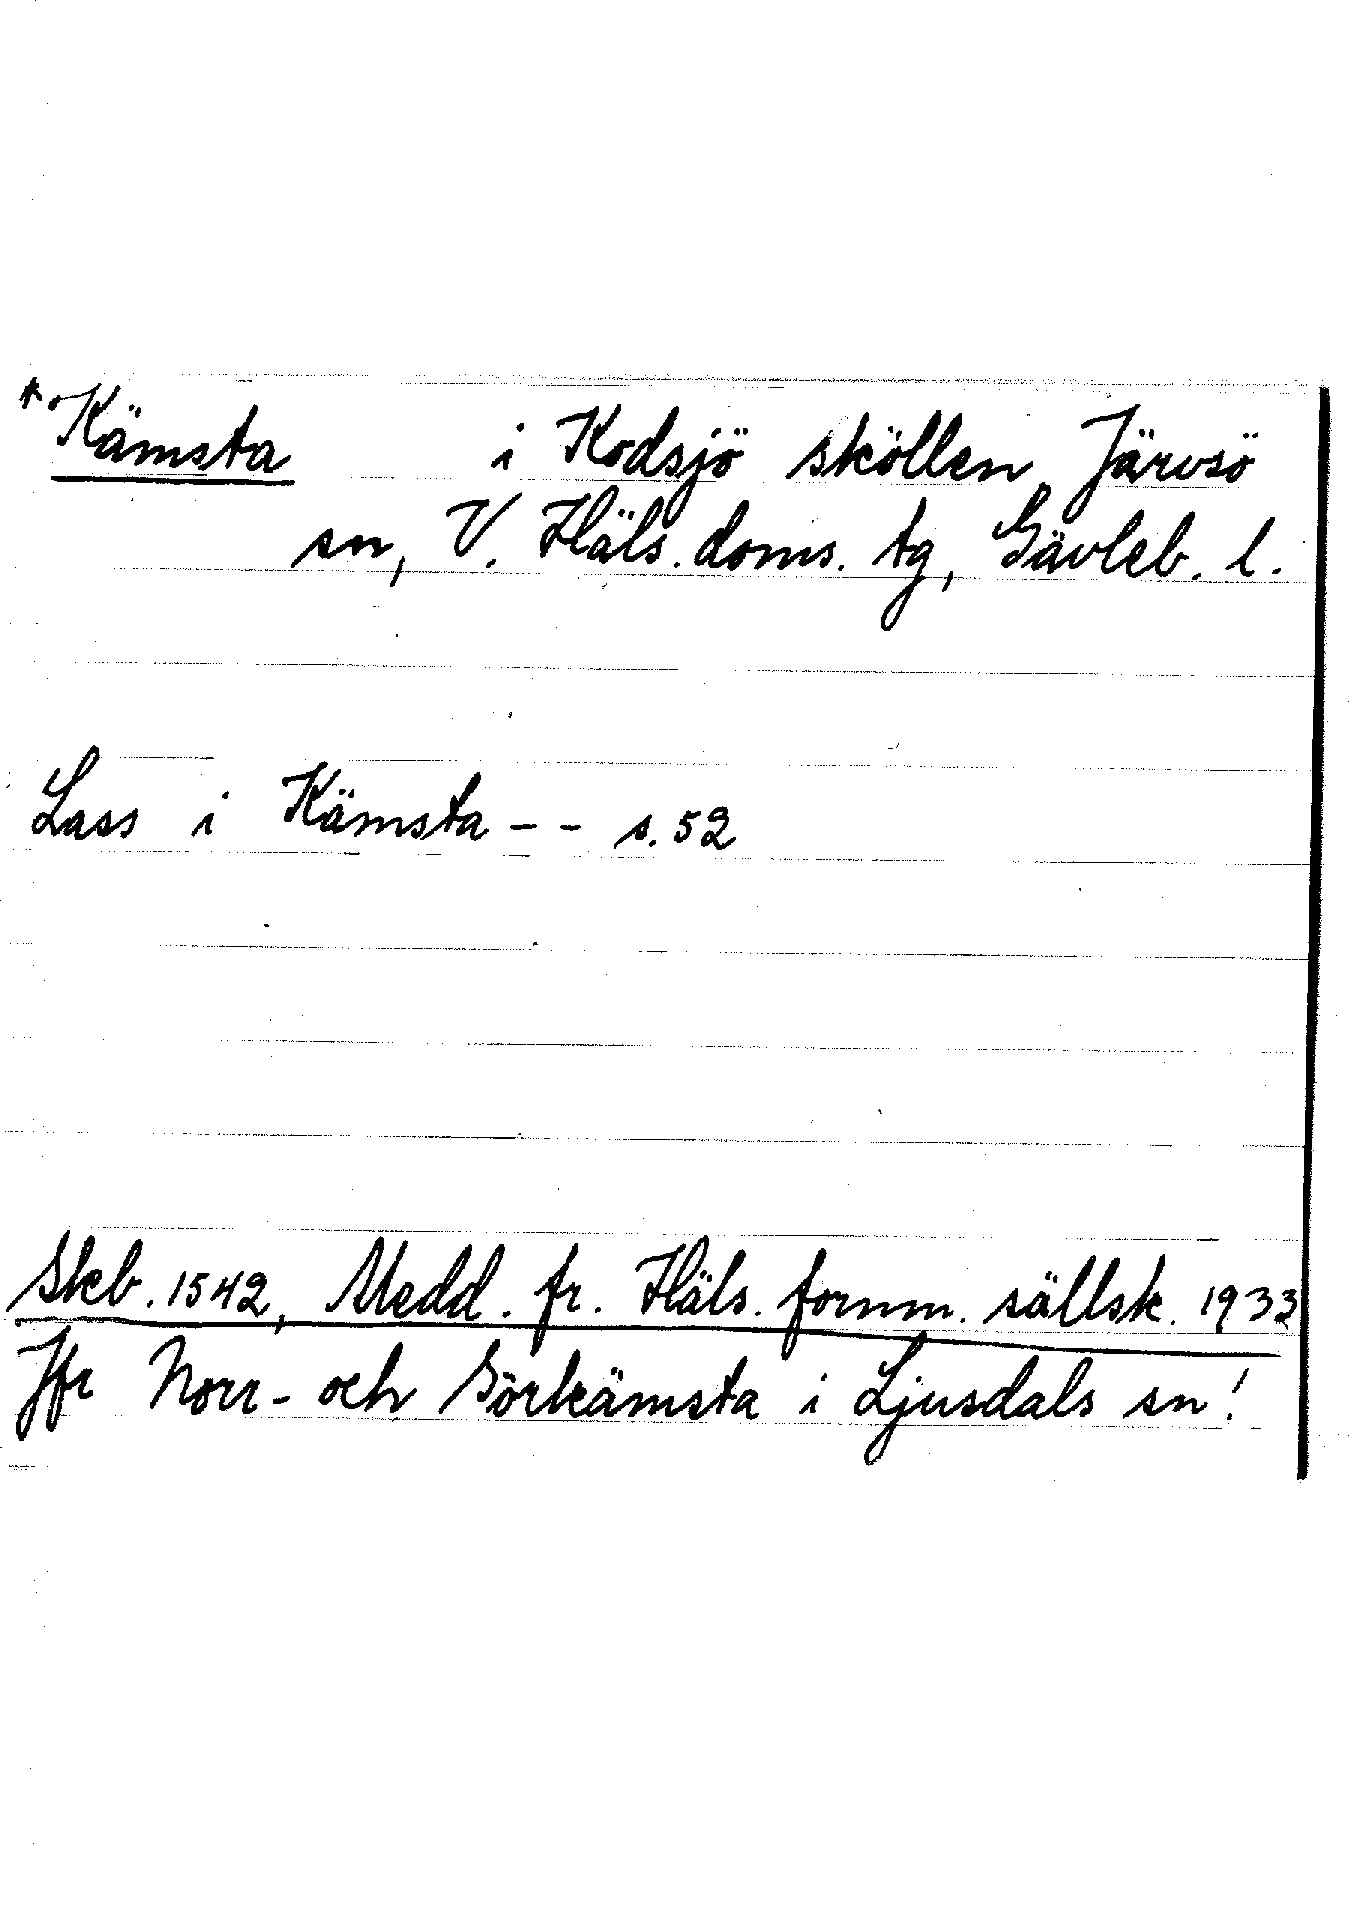 *Kämsta i Kodsjö sköllen, Järvsö
sn, V. Häls. doms. tg, Gävleb. l.
Lass i Kämsta - - s. 52
Skeb. 1542, Medd. fr. Häls. fornm. sällsk. 1933
Jfr Norr- och Sörkämsta i Ljusdals sn!